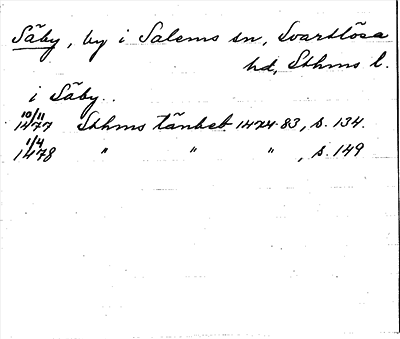 Säby, by i Salems sn, Svartlösa
hd, Sthms l.
i Säby..
10/11
1477 Sthms tänkeb. 1474-83, s. 134.
1/4
1478 " " " , s. 149